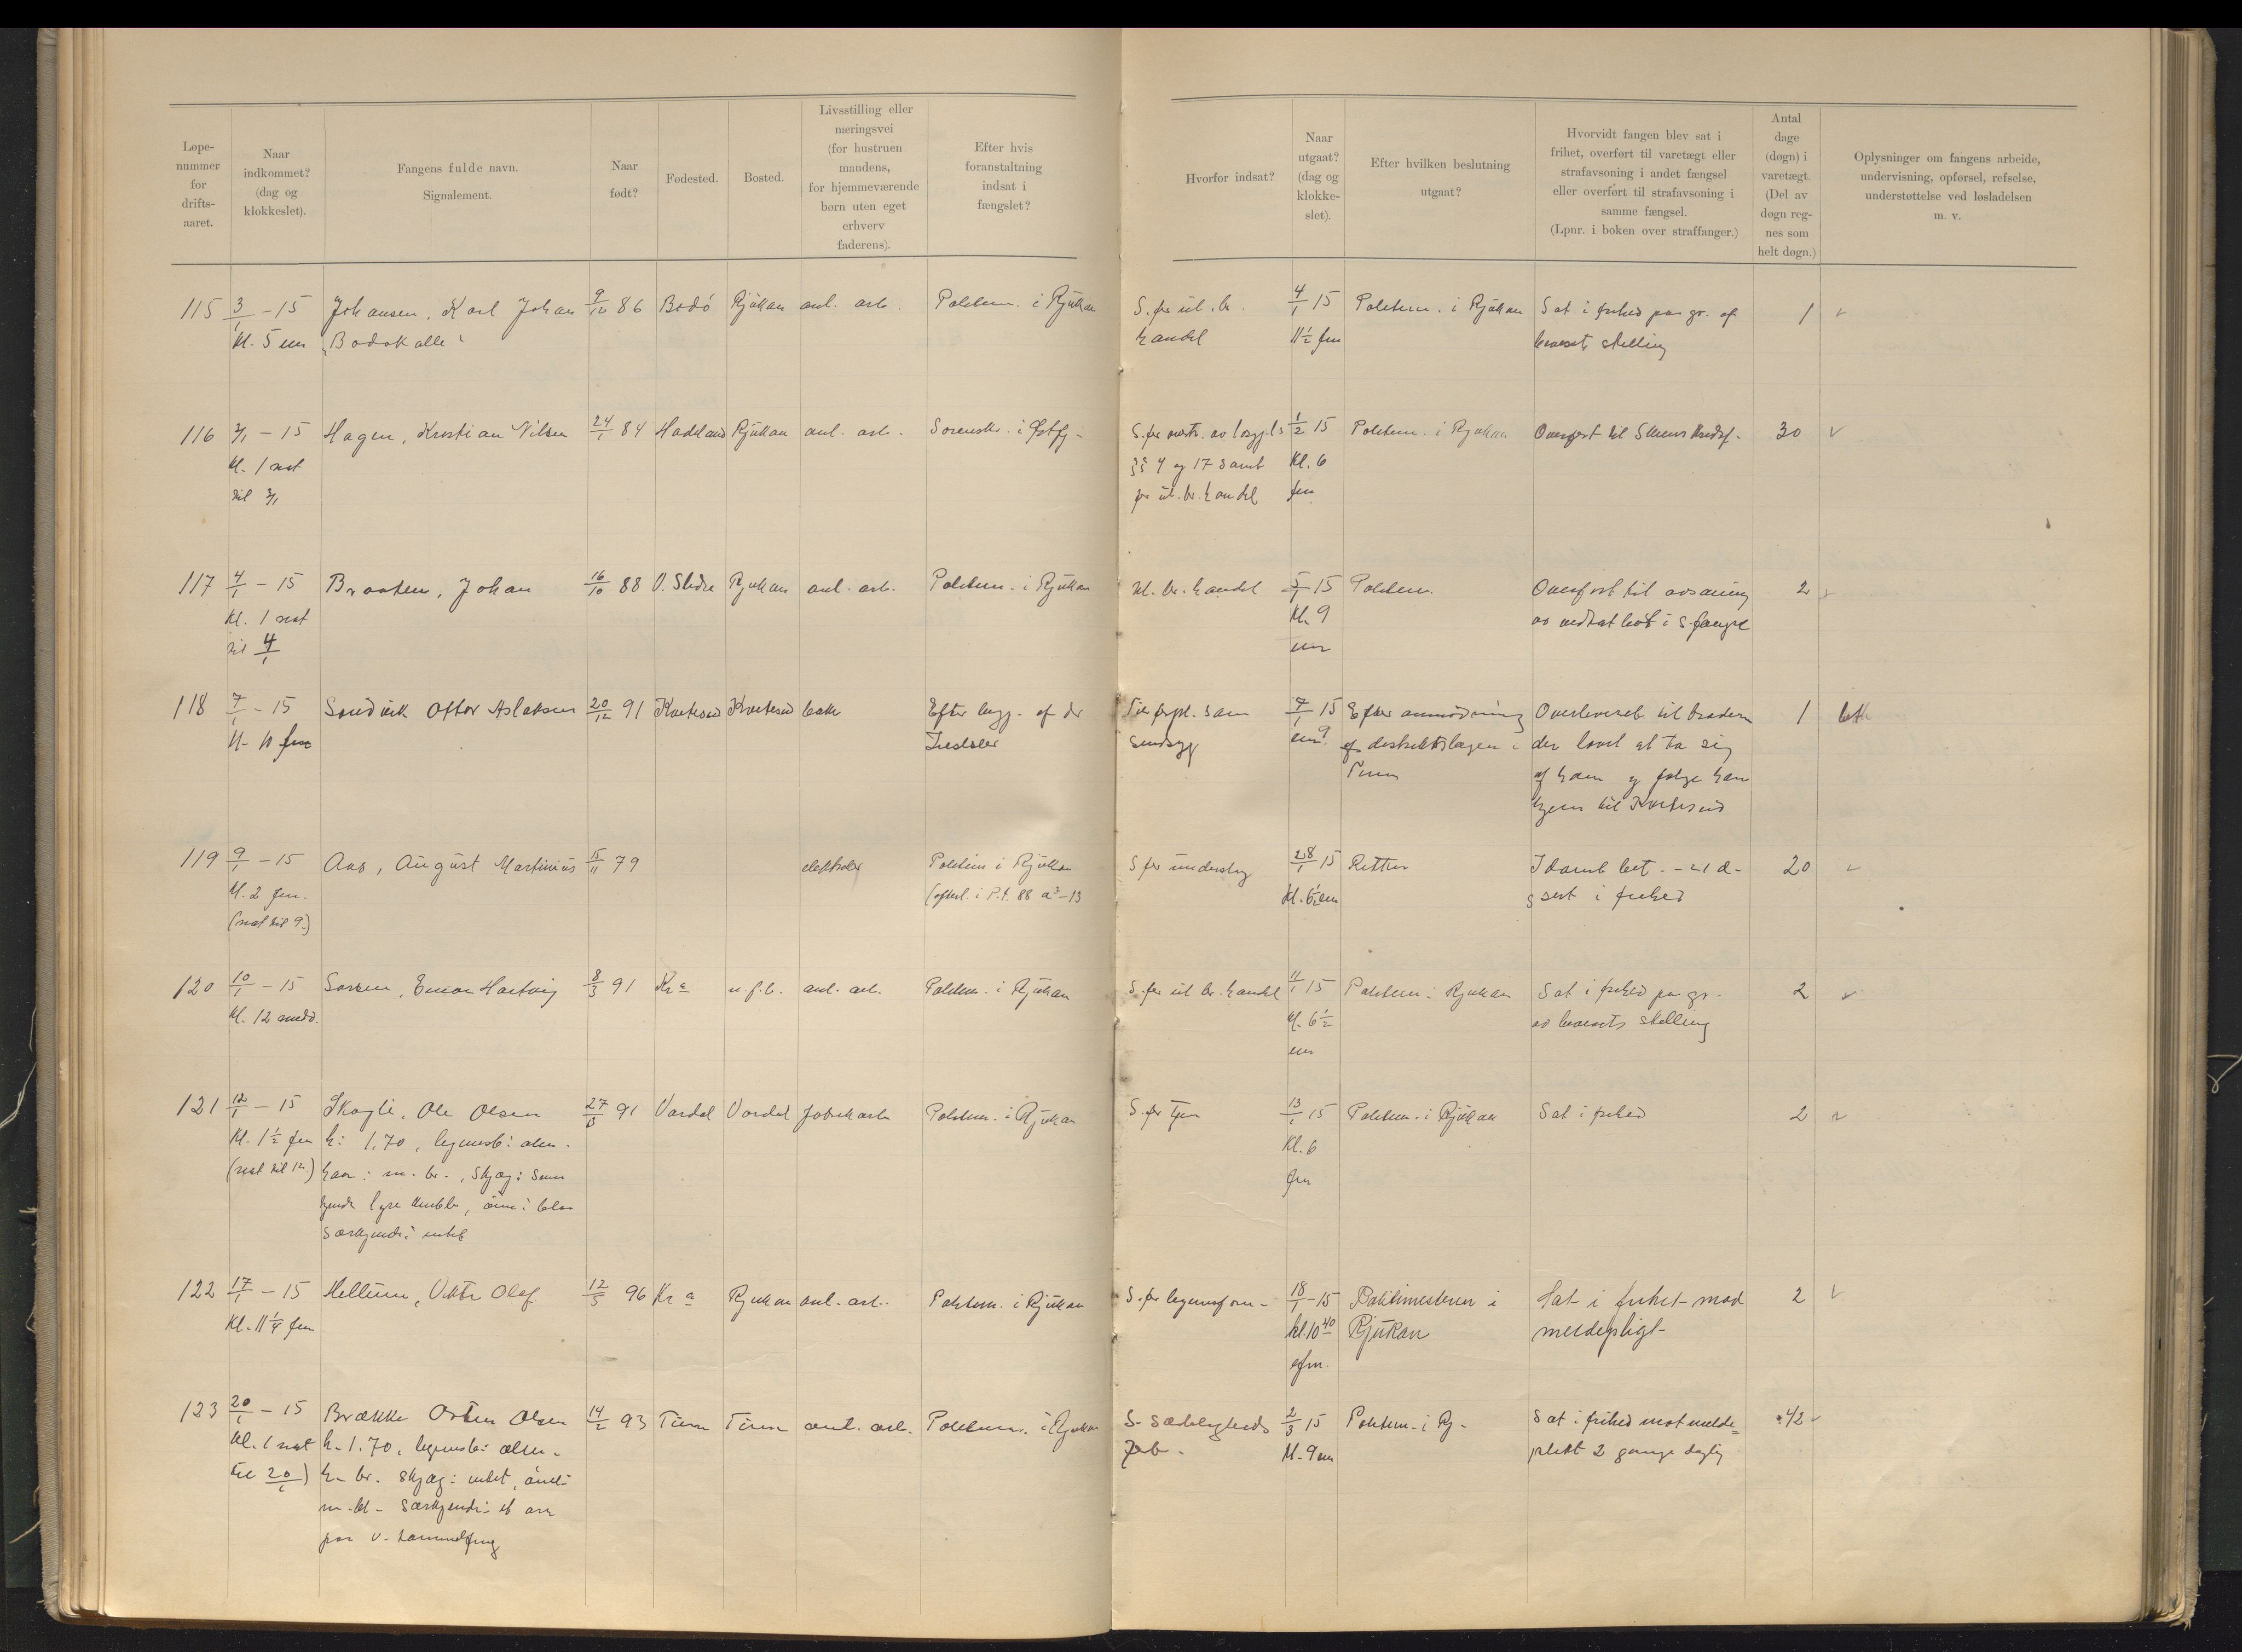 Løpe-
nummer
for
drifts-
aaret.
Naar
indkommet?
(dag og
klokkeslet).
Fangens fulde navn.
Signalement.
Naar
født?
Fødested.
Bosted.
Livsstilling eller
næringsvei
(for hustruen
mandens,
for hjemmeværende
børn uten eget
erhverv
faderens).
Efter hvis
foranstaltning
indsat i
fængslet?
Hvorfor indsat?
Naar
utgaat?
(dag og
klokke-
slet).
Efter hvilken beslutning
utgaat?
Hvorvidt fangen blev sat i
frihet, overført til varetægt eller
strafavsoning i andet fængsel
eller overført til strafavsoning i
samme fængsel.
(Lpnr. i boken over straffanger.)
Antal
dage
(døgn) i
varetægt.
(Del av
døgn reg-
nes som
helt døgn.)
Oplysninger om fangens arbeide,
undervisning, opførsel, refselse,
understøttelse ved løsladelsen
m. v.
115 3/1 - 15 Johansen, Karl Johan 9/12 86 Bodö Rjukan anl. arb. Politim. i Rjukan S. for ul. br. 4/1 15 Politim. i Rjukan Sat i frihed paa gr. af 1
kl. 5 em "Bodokalle" handel 11½ fm bevisets stilling
116 3/1 - 15 Hagen, Kristian Nilsen 24/1 84 Hadeland Rjukan anl. arb. Sorenskr. i Østfj- 1/2 15 Politim. i Rjukan Overført til Skiens kredsf. 30
kl. 1 nat §§ 4 og 17 samt Kl. 6
til 3/1 for ul. br. handel fm
117 4/1 - 15 Braaten, Johan 16/10 88 V. Slidre Rjukan anl. arb. Politim. i Rjukan Ul. br. handel 5/1 15 Politim. Overført til avsoning 2
Kl. 1 nat Kl. 9 av vedtat bøt i s. fængsel
til 4/1 em
118 7/1 - 15 Sandvik Ottor Aslaksen 20/12 91 Kvitesud Kvitesud Efter beg. af dr 7/1 15 Efter anmodning Overleveret til broderen 1
kl. 10 fm sindsyg em 9 af distriktslægen i der lovet at ta sig
Tinn af ham og følge ham
hjem til Kvitesud
119 9/1 - 15 Aas, August Martinius 15/11 79 Politim i Rjukan S for underslag 28/1 15 Retten 20
kl. 2 fm. (efterl. i P.t. 88 a² - 13 kl. 6½ em sat i frihed
(nat til 9.)
120 10/1 - 15 Emar Hartvig 8/3 91 Kr a u. f. b. anl. arb. Politim. i Rjukan S. for ul br. handel 11/1 15 Politim. i Rjukan Sat i frihed pa gr. 2
kl. 12 midd. kl. 6½ av bevisets stilling
em
121 12/1 - 15 Skogli, Ole Olsen 27/6 91 Vardal Vardal fabrikarb Politim. i Rjukan S. for tyv 13/1 15 Politim. i Rjukan Sat i frihed 2
Kl. 1½ fm h: 1.70, legemsb: alm. Kl. 6
(nat til 12.) haar: m. br., skjæg: sam fm
lyse knebb, öine: blaa
Særkjende: intet
122 17/1 - 15 Hellum, Viktor Olaf 12/5 96 Kr a Rjukan anl. arb. Politim. i Rjukan S. for legemsforn- 18/1 - 15 Politimesteren i Sat i frihet mod 2
Kl. 11¼ fm kl. 10 40 Rjukan meldepligt-
efm.
123 20/1 - 15 Brække Osten Olsen 14/2 93 Tinn Tinn anl. arb. Politim. i Rjukan S. Sædeligheds 2/3 15 Politim. i Rj- Sat i frihed mot melde= 42
Kl. 1 nat h. 1.70, legemsb: alm. forb. kl. 9 em plikt 2 gange daglig
til 20/1) h. br. skjæg: intet, öine:
m. bl. Særkjende: et arr
paa v. tommelfing